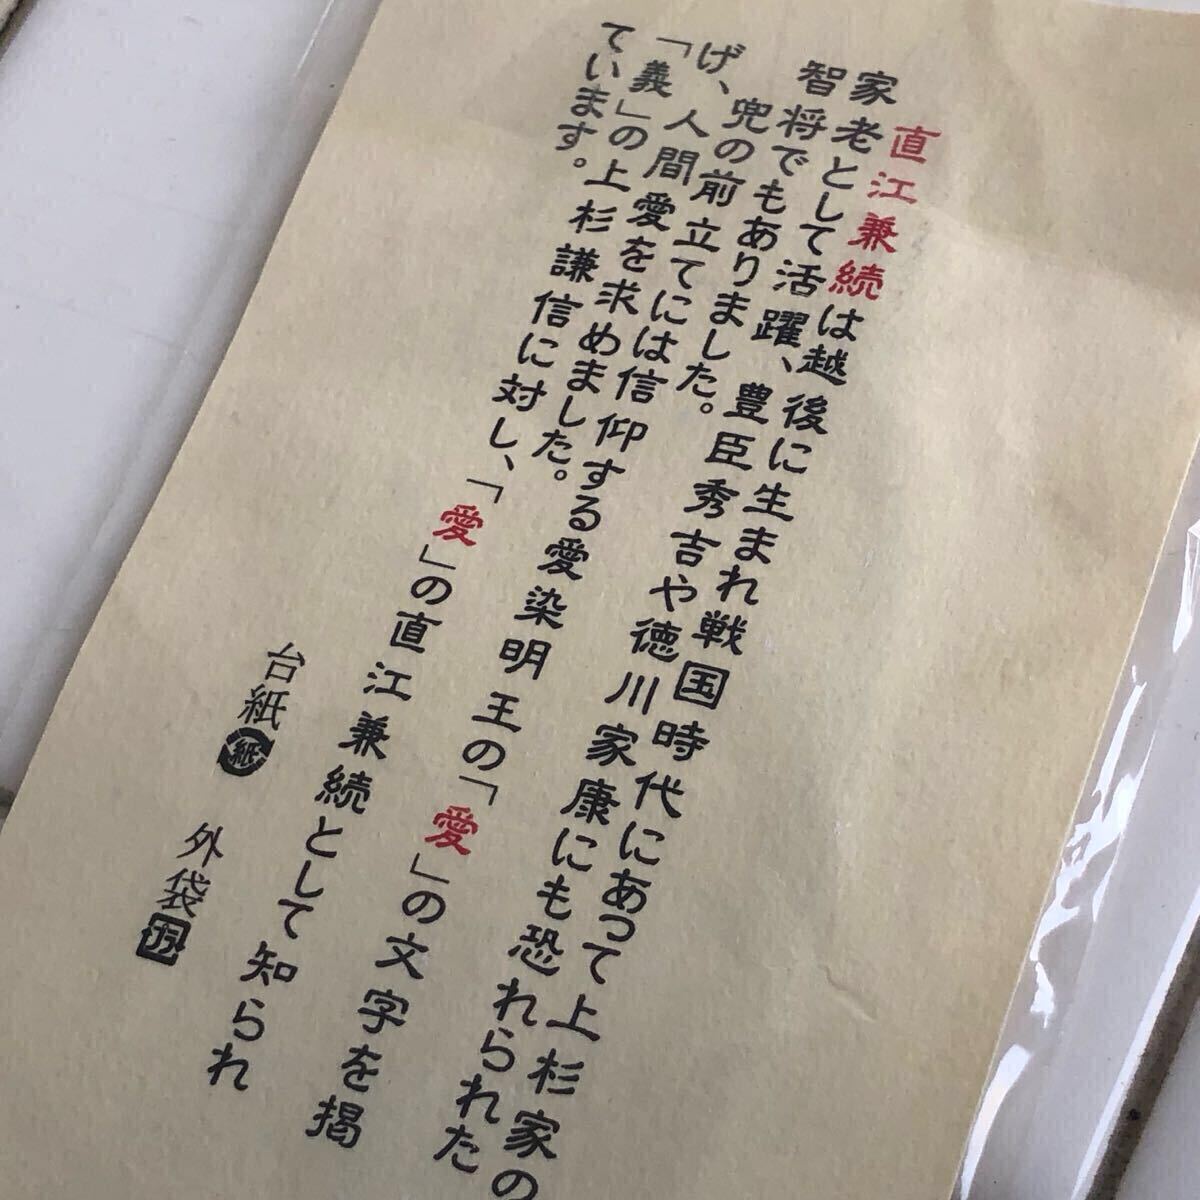 直江兼続は越後に生まれ戦国時代にあって上杉家の
家老として活躍、豊臣秀吉や徳川家康にも恐れられた
智将でもありました。
兜の前立てには信仰する愛染明王の「愛」の文字を掲
げ、人間愛を求めました。
「義」の上杉謙信に対し、「愛」の直江兼続として知られ
ています。
台紙 紙 外袋 プラ